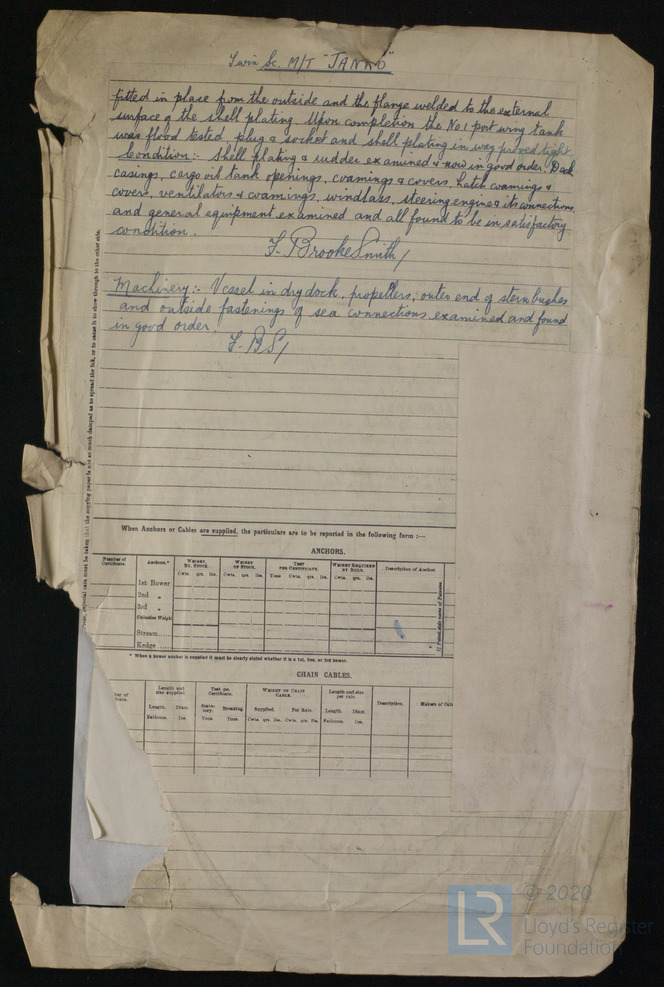 Twin Sc. M/T "JANKO"
fitted in place from the outside and the flange welded to the external
surface of the shell plating. Upon completion the No 1 port wing tank
was flood tested, plug & socket and shell plating in way proved tight
Condition:- Shell plating & rudder examined & now in good order. Deck
casings, cargo oil tank openings, coamings & covers, hatch coamings &
covers, ventilators & coamings, windlass, steering engine & its connections,
and general equipment examined and all found to be in satisfactory
condition.
F. Brooke Smith/
Machinery:- Vessel in dry dock, propellers, outer end of stern bushes
and outside fastenings of sea connections examined and found
in good order.
F. B S/
care must be taken that the copying paper is not so much damped as to spread the ink, or to cause it to show through to the other side.
When Anchors or Cables are supplied, the particulars are to be reported in the following form :—
ANCHORS.
Number of Certificate. Anchors.* WEIGHT, EX. STOCK. WEIGHT OF STOCK. TEST PER CERTIFICATE. WEIGHT REQUIRED BY RULE. Description of Anchor.
Cwts. qrs. lbs. Cwts. qrs. lbs. Tons Cwts. qrs. lbs. Cwts. qrs. lbs.
1st Bower
2nd „
3rd „
Collective Weight
Stream
Kedge
* If Patent state name of Patentee.
* When a bower anchor is supplied it must be clearly stated whether it is a 1st, 2nd, or 3rd bower.
CHAIN CABLES.
Length and size supplied. Test per Certificate. WEIGHT OF CHAIN CABLE. Length and size per rule. Description. Makers of
Length. Diam. Statutory. Breaking. Supplied. Per Rule. Length. Diam.
Fathoms. Ins. Tons Tons. Cwts. qrs. lbs. Cwts. qrs. lbs. Fathoms. Ins.
LR
© 2020
Lloyd's Register
Foundation